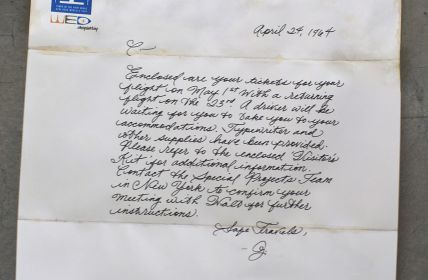 WED
April 24, 1964
C—
Enclosed are your tickets for your
flight on May 1st with a returning
flight on the 23rd. A driver will be
waiting for you to take you to your
accommodations. Typewriter and
other supplies have been provided.
Please refer to the enclosed Visitor's
Kit for additional information.
Contact the Special Projects Team
in New York to confirm your
meeting with Walt for further
instructions.
Safe Travels,
- G.